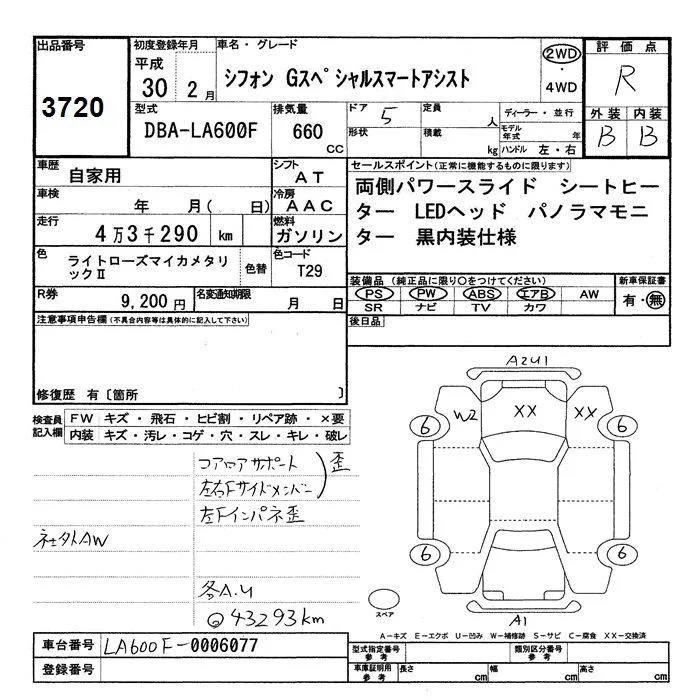 出品番号
3720
初度登録年月
平成
30 2月
車名・グレード
シフォン Gスペシャルスマートアシスト
2WD
・
4WD
評価点
R
外装 内装
B B
型式
DBA-LA600F
排気量
660 CC
ドア 5
形状
定員 人
積載 kg
ディーラー・並行
モデル年式 年
ハンドル 左・右
車歴
自家用
シフト
AT
車検 年 月( 日)
冷房
AAC
走行
4万3千290 km
燃料
ガソリン
色
ライトローズマイカメタリ
ックⅡ
色替
色コード
T29
R券
9,200円
名変通知期限 月 日
セールスポイント(正常に機能するものに限ります)
両側パワースライド シートヒー
ター LEDヘッド パノラマモニ
ター 黒内装仕様
装備品 (純正品に限り○をつけてください)
新車保証書
PS PW ABS エアB AW
SR ナビ TV カワ
有・無
後日品
注意事項申告欄(不具合内容等は具体的に記入して下さい)
修復歴 有〔箇所 〕
検査員
記入欄
FW キズ・飛石・ヒビ割・リペア跡・×要
内装 キズ・汚レ・コゲ・穴・スレ・キレ・破レ
コアロアサポート
左右Fサイドメンバー
歪
左Fインパネ歪
社外AW
各A.U
43293km
A2U1
W2 XX XX
6 6
6 6
スペア
A1
A-キズ E-エクボ U-凹み W-補修跡 S-サビ C-腐食 XX-交換済
車台番号 LA600F-0006077
登録番号
型式指定番号
参考
類別区分番号
参考
車庫証明用
参考
長さ cm
幅 cm
高さ cm